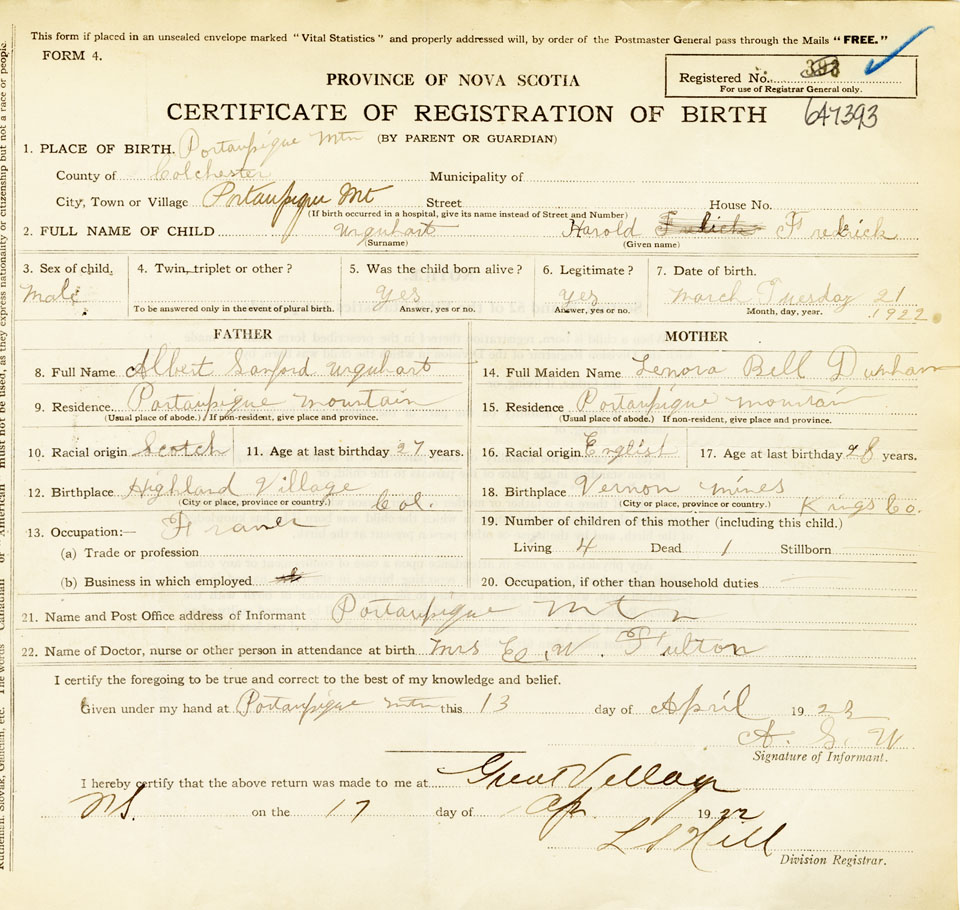 This form if placed in an unsealed envelope marked "Vital Statistics" and properly addressed will, by order of the Postmaster General pass through the Mails "FREE."
FORM 4.
PROVINCE OF NOVA SCOTIA
Registered No. 393
For use of Registrar General only.
CERTIFICATE OF REGISTRATION OF BIRTH 647393
(BY PARENT OR GUARDIAN)
1. PLACE OF BIRTH. Portaupique Mtn
County of Colchester Municipality of
City, Town or Village Portaupique Mt Street House No.
(If birth occurred in a hospital, give its name instead of Street and Number)
2. FULL NAME OF CHILD Urquhart Harold Fredrick
(Surname) (Given name)
3. Sex of child. Male
4. Twin, triplet or other?
To be answered only in the event of plural birth.
5. Was the child born alive? yes
Answer, yes or no.
6. Legitimate? yes
Answer, yes or no.
7. Date of birth. March Tuesday 21 1922
Month, day, year.
FATHER
8. Full Name Albert Sanford Urquhart
9. Residence Portaupique mountain
(Usual place of abode.) If non-resident, give place and province.
10. Racial origin Scotch 11. Age at last birthday 27 years.
12. Birthplace Highland Village Col.
(City or place, province or country.)
13. Occupation:—
(a) Trade or profession
(b) Business in which employed
MOTHER
14. Full Maiden Name Lenora Bell Dunham
15. Residence Portaupique mountain
(Usual place of abode.) If non-resident, give place and province.
16. Racial origin English 17. Age at last birthday 28 years.
18. Birthplace Vernon mines Kings Co.
(City or place, province or country.)
19. Number of children of this mother (including this child.)
Living 4 Dead 1 Stillborn
20. Occupation, if other than household duties
21. Name and Post Office address of Informant Portaupique Mtn
22. Name of Doctor, nurse or other person in attendance at birth Mrs E. W. Fulton
I certify the foregoing to be true and correct to the best of my knowledge and belief.
Given under my hand at Portaupique mtn this 13 day of April 19
A. S. U
Signature of Informant.
I hereby certify that the above return was made to me at Great Village
N.S. on the 17 day of Ap. 1922
L S Hill
Division Registrar.